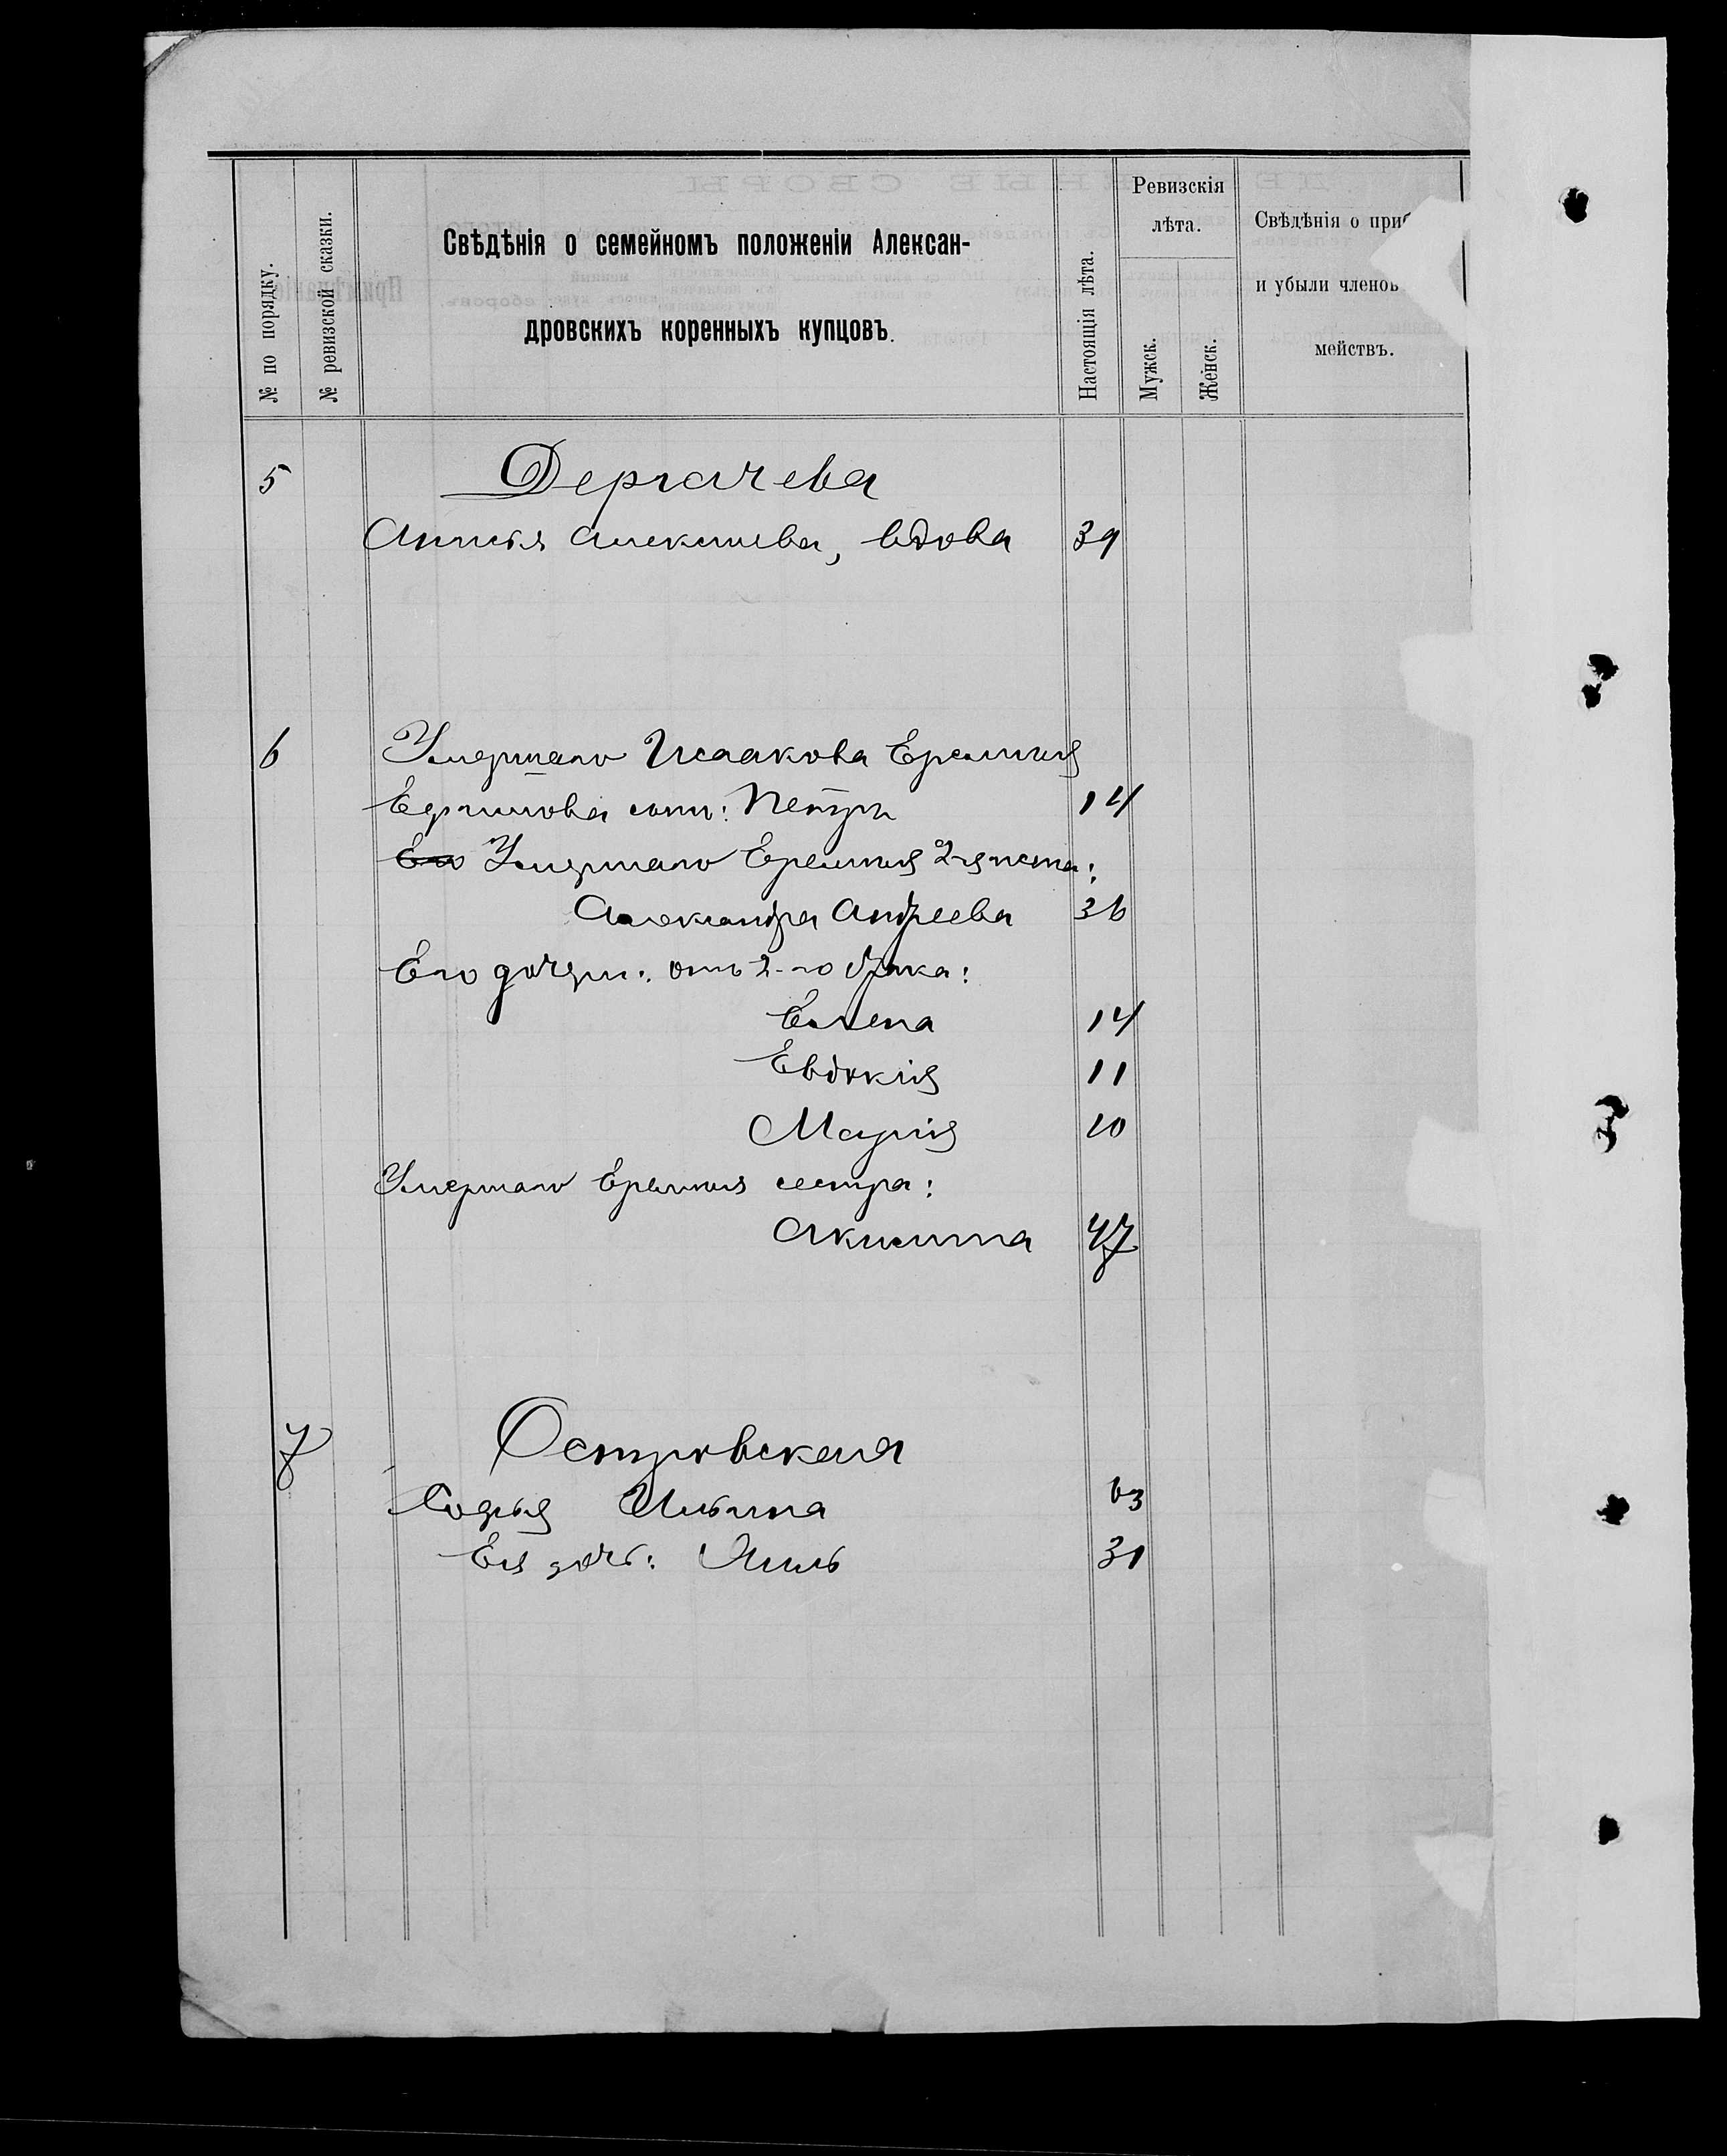 № по порядку.
№ ревизской сказки.
Свѣдѣнія о семейномъ положеніи Алексан-
дровскихъ коренныхъ купцовъ.
Настоящія лѣта.
Ревизскія
лѣта.
Мужск.
Женск.
Свѣдѣнія о приб
и убыли членов
мействъ.
5 Дергачева
Алексѣева, вдова 39
6 Умершаго Исаакова Еремія
Ефимова сынъ: Петръ 14
Его Умершаго Еремія 2-я жена:
Александра Андреева 36
Его дочери: отъ 2-го брака:
Елена 14
Евдокія 11
Марія 10
Умершаго Еремія сестра:
Акилина 47
7 Островская
Софья Ильина 63
Ея дочь: 31